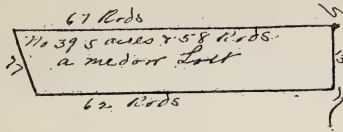 67 Rods
No 39 5 acres & 58 Rods
a medow Lott
62 Rods